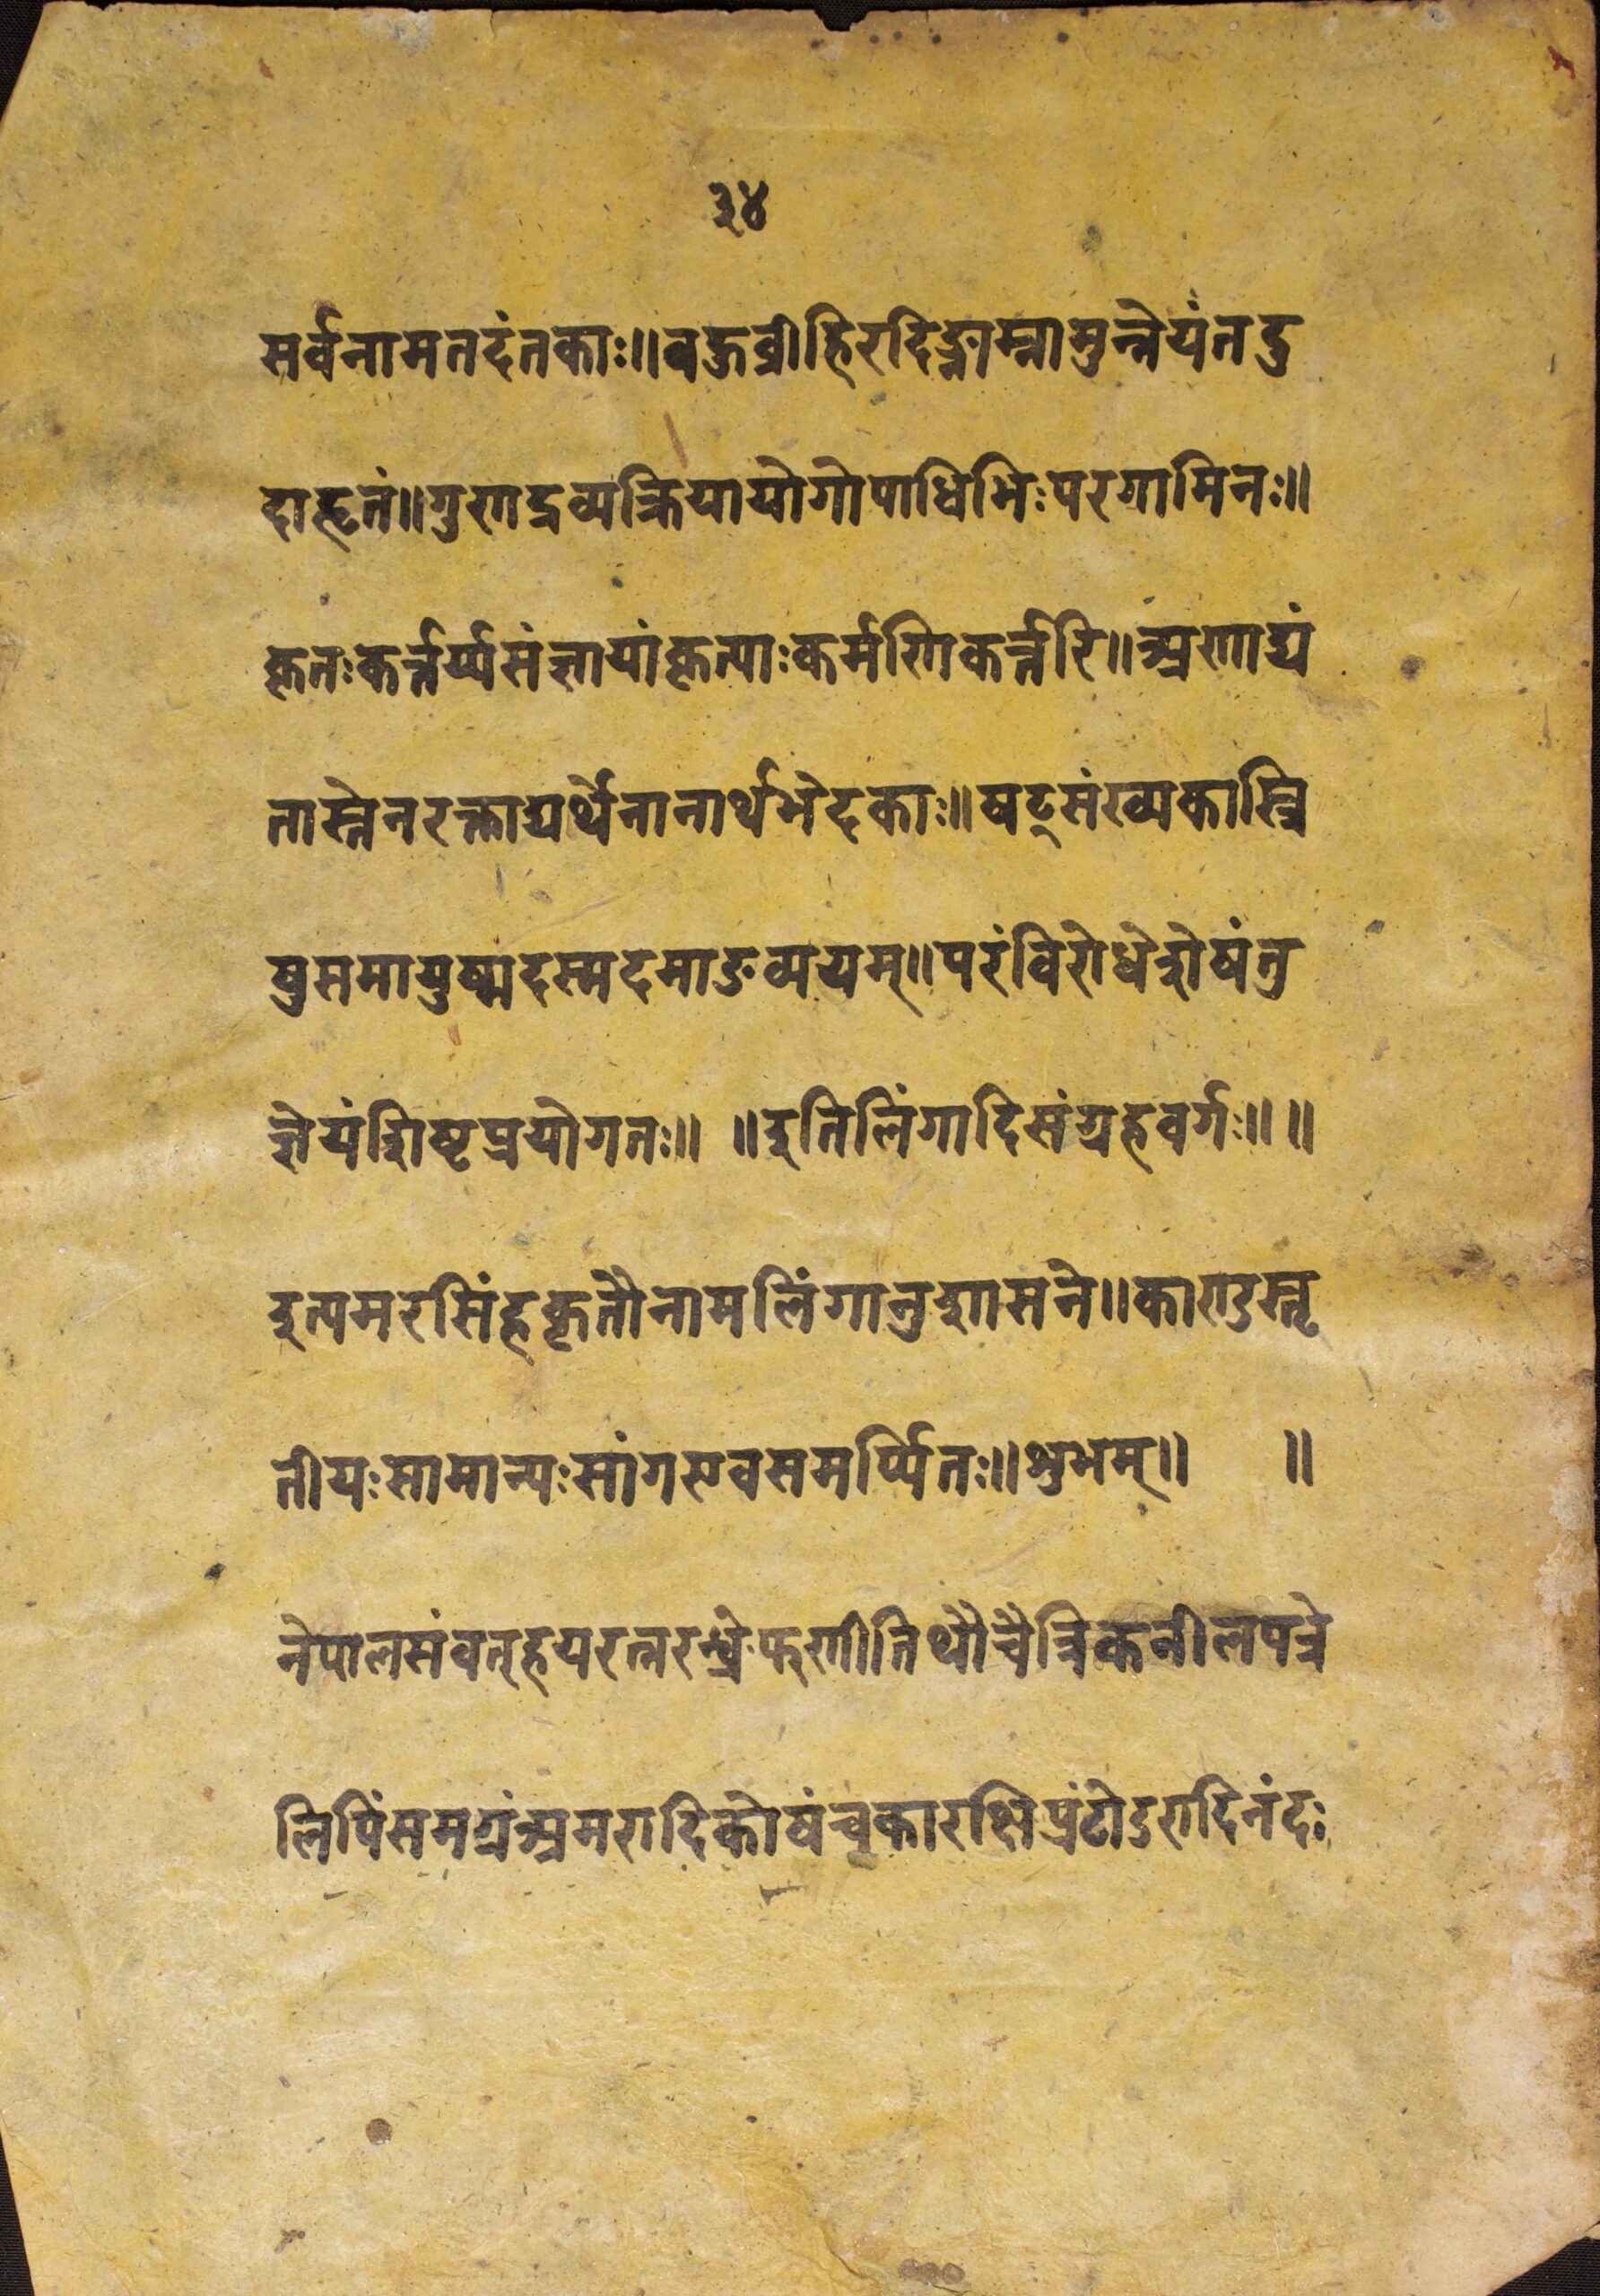 ३४
सर्वनामतदंतकाः॥बहुव्रीहिरदिङ्नाम्नामुन्नेयंतदु
दाहृतं॥गुणद्रव्यक्रियायोगोपाधिभिःपरगामिनः॥
कृतःकर्त्तर्य्यसंज्ञायांकृत्याःकर्मणिकर्त्तरि॥अणाद्यं
तास्तेनरक्ताद्यर्थेनानार्थभेदकाः॥षट्संख्यकास्त्रि
षुसमायुष्मदस्मदमाङव्ययम्॥परंविरोधेशेषंतु
ज्ञेयंशिष्टप्रयोगतः॥ ॥इतिलिंगादिसंग्रहवर्गः॥॥
इत्यमरसिंहकृतौनामलिंगानुशासने॥काण्डस्तृ
तीयःसामान्यःसांगएवसमर्प्पितः॥शुभम्॥ ॥
नेपालसंवत्हयरत्नरन्ध्रेफणीतिथौचैत्रिकनीलपत्रे
लिपिंसमग्रंअमरादिकोषंचकारक्षिप्रंटोडरादिनंदः